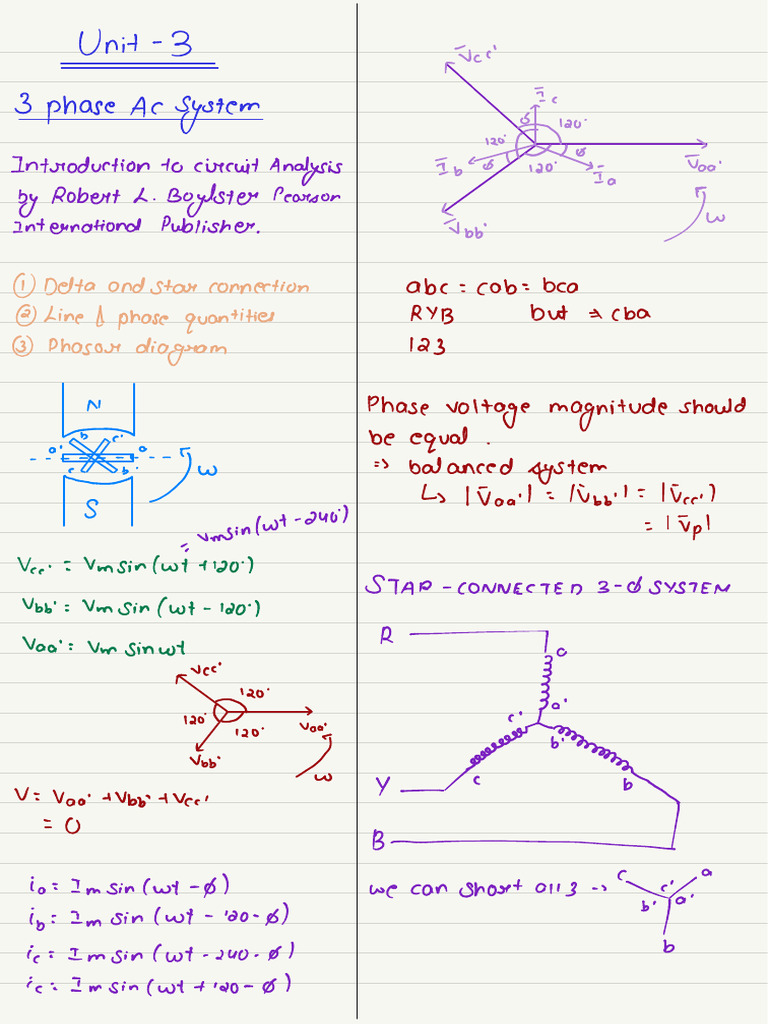 Unit - 3
3 phase Ac System
Introduction to circuit Analysis
by Robert L. Boylster Pearson
International Publisher.
① Delta and star connection
② Line & phase quantities
③ Phasor diagram
N
a' b c' a
c b'
ω
S
= Vm sin(ωt - 240°)
Vcc' = Vm sin(ωt + 120°)
Vbb' = Vm sin(ωt - 120°)
Vaa' = Vm sin ωt
Vcc'
120°
120°
Vaa'
120°
Vbb'
ω
V = Vaa' + Vbb' + Vcc'
= 0
ia = Im sin(ωt - ϕ)
ib = Im sin(ωt - 120 - ϕ)
ic = Im sin(ωt - 240 - ϕ)
ic = Im sin(ωt + 120 - ϕ)
V̄cc'
Īc
ϕ 120°
120°
Īb ϕ 120° ϕ Īa
V̄aa'
V̄bb'
ω
abc = cab = bca
RYB but ⇒ cba
123
Phase voltage magnitude should
be equal.
⇒ balanced system
↳ |V̄aa'| = |V̄bb'| = |V̄cc'|
= |V̄p|
STAR - CONNECTED 3-ϕ SYSTEM
R
a
a'
c'
b'
c
b
Y
B
we can short all 3 →
c a
c'
b' a'
b